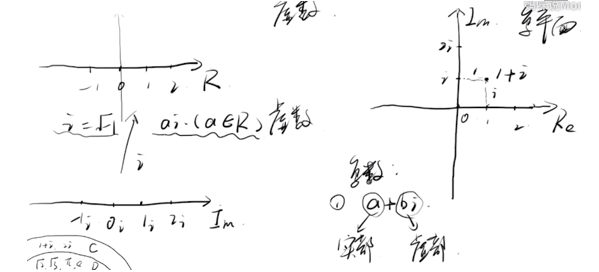 虚数
-1 0 1 2 R
i=√-1 ai.(a∈R) 虚数
i
-1i 0i 1i 2i Im
1+i 2i C
Im 复平面
2i
i 1 1+i
i
0 1 2 Re
复数:
① a+bi
实部 虚部